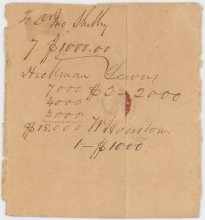 To Dr Jno Shelby
7 $1000.00
Hickman Lewis
7000 $2 - 2000
4000
4000
$15.000 W Harriston
1 - $1000.